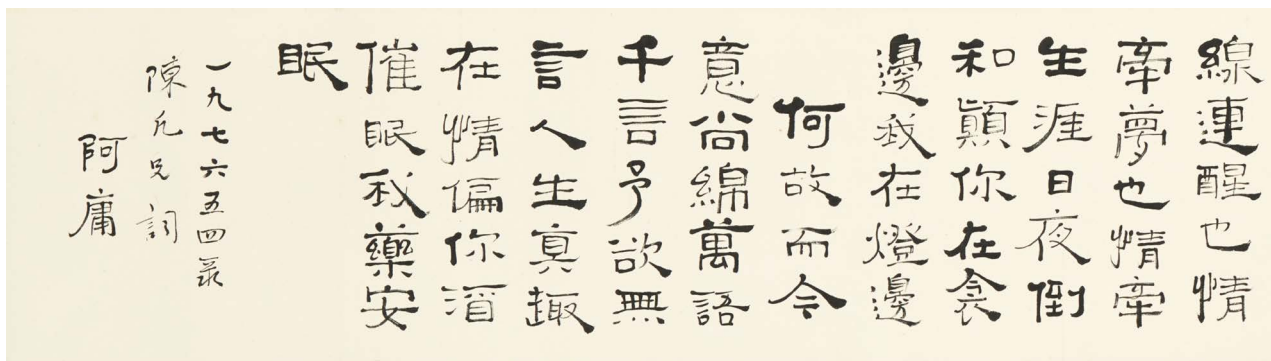 線連醒也情
牽夢也情牽
生涯日夜倒
和顛你在衾
邊我在燈邊
何故而今
意尚綿萬語
千言予欲無
言人生真趣
在情偏你酒
催眠我藥安
眠
一九七六五四录
陳凡兄詞
阿庸